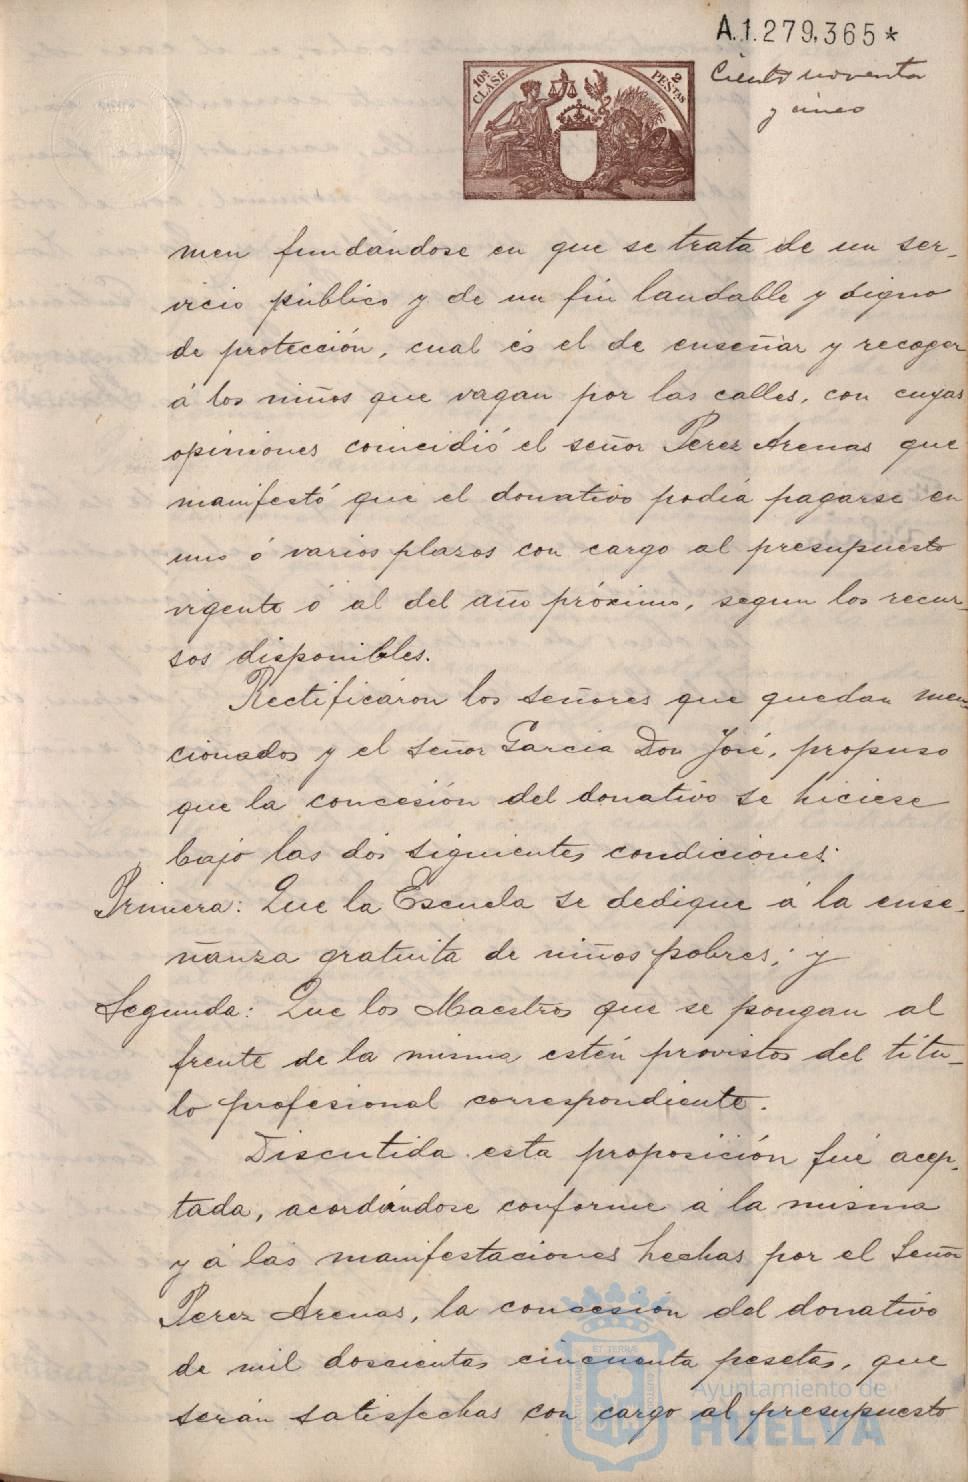 A.1.279,365*
Ciento noventa
y cinco
10ª CLASE
2 PESTAS
men fundándose en que se trata de un ser-
vicio público y de un fin laudable y digno
de protección, cual és el de enseñar y recoger
á los niños que vagan por las calles, con cuyas
opiniones coincidió el señor Perez Arenas que
manifestó que el donativo podía pagarse en
uno ó varios plazos con cargo al presupuesto
vigente ó al del año próximo, segun los recur-
sos disponibles.
Rectificáron los señores que quedan men-
cionados y el señor García Don José, propuso
que la concesión del donativo se hiciese
bajo las dos siguientes condiciones:
Primera: Que la Escuela se dedique á la ense-
ñanza gratuita de niños pobres; y
Segunda: Que los Maestros que se pongan al
frente de la misma estén provistos del títu-
lo profesional correspondiente.
Discutida esta proposición fué acep-
tada, acordándose conforme á la misma
y á las manifestaciones hechas por el Señor
Perez Arenas, la concesion del donativo
de mil doscientas cincuenta pesetas, que
serán satisfechas con cargo al presupuesto
Ayuntamiento de
HUELVA